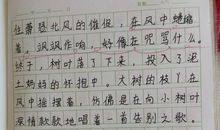 住萧瑟北风的催促，在风中蜷缩
着，飒飒作响，好像在咒骂什么。
终于，树叶落了下来，投入了泥
土妈妈的怀抱中。大树的枝丫在
风中摇摆着，仿佛是在向小树叶
深情款款地唱着一首告别之歌。